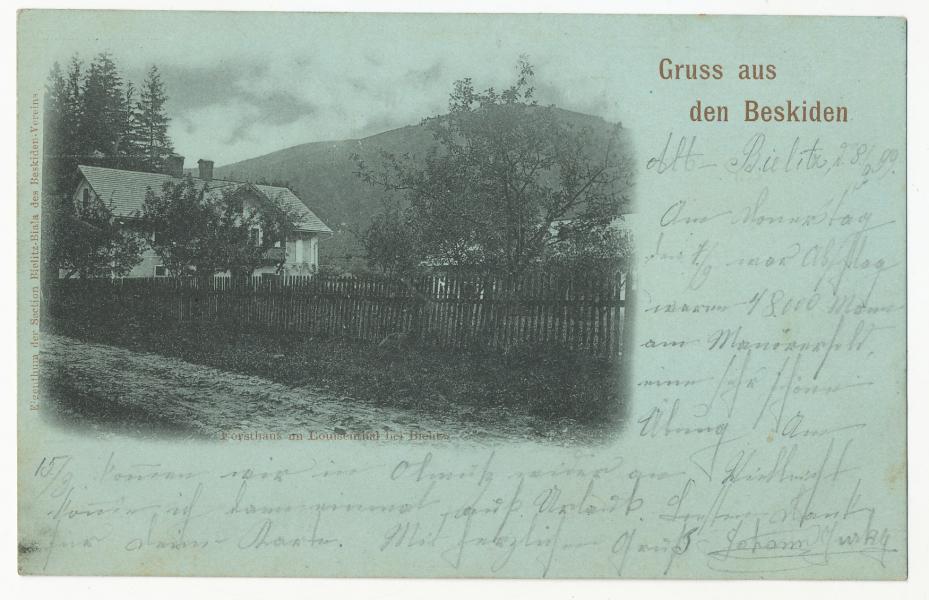 Gruss aus
den Beskiden
Eigenthum der Section Bielitz-Biala des Beskiden-Vereins
Forsthaus im Louisenthal bei Bielitz
Alt-Bielitz,
Am Donerstag
war
waren 18,000 Mann
am Manöverfeld,
eine sehr schöne
Übung Am
15/9. kommen wir in Olmütz wider an Vielleicht
komme ich dann einmal auf Urlaub. Besten Dank
für deine Karte. Mit herzlichen Gruß Johann